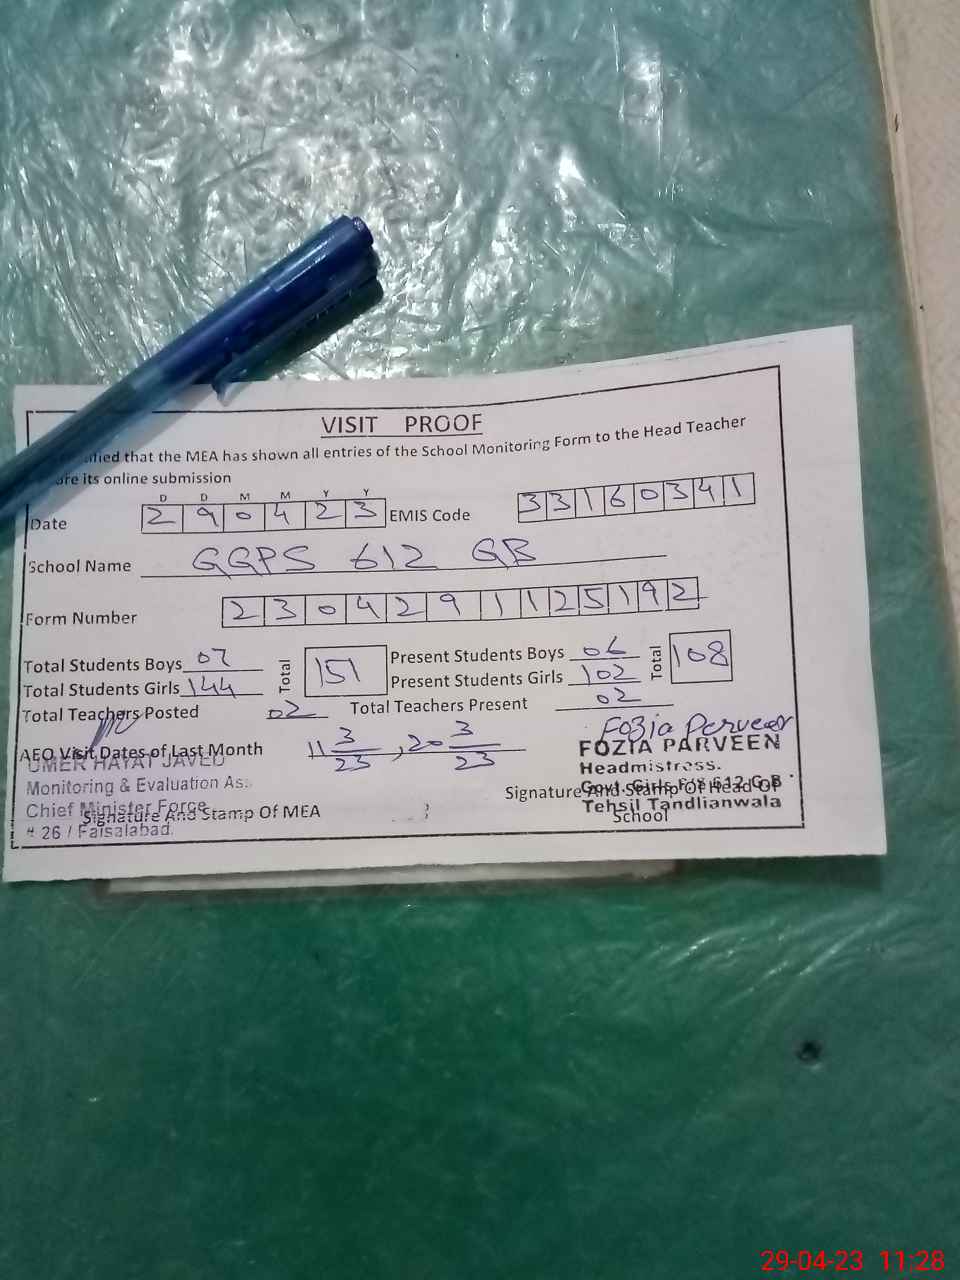 VISIT PROOF
that the MEA has shown all entries of the School Monitoring Form to the Head Teacher
its online submission
D D M M Y Y
Date 290423 EMIS Code 33160341
School Name GGPS 612 GB
Form Number 2304291125192
Total Students Boys 07 Total 151 Present Students Boys 06 Total 108
Total Students Girls 144 Present Students Girls 102
Total Teachers Posted 02 Total Teachers Present 02
Fozia Perveen
AEO Visit Dates of Last Month 11 3/23, 20 3/23
FOZIA PARVEEN
UMER HAYAT JAVED
Headmistress.
Monitoring & Evaluation Ass.
Govt. Girls P/S 612 G.B
Signature And Stamp Of Head OF
Chief Minister Force
Tehsil Tandlianwala
Signature And Stamp Of MEA
School
# 26 / Faisalabad.
29-04-23 11:28